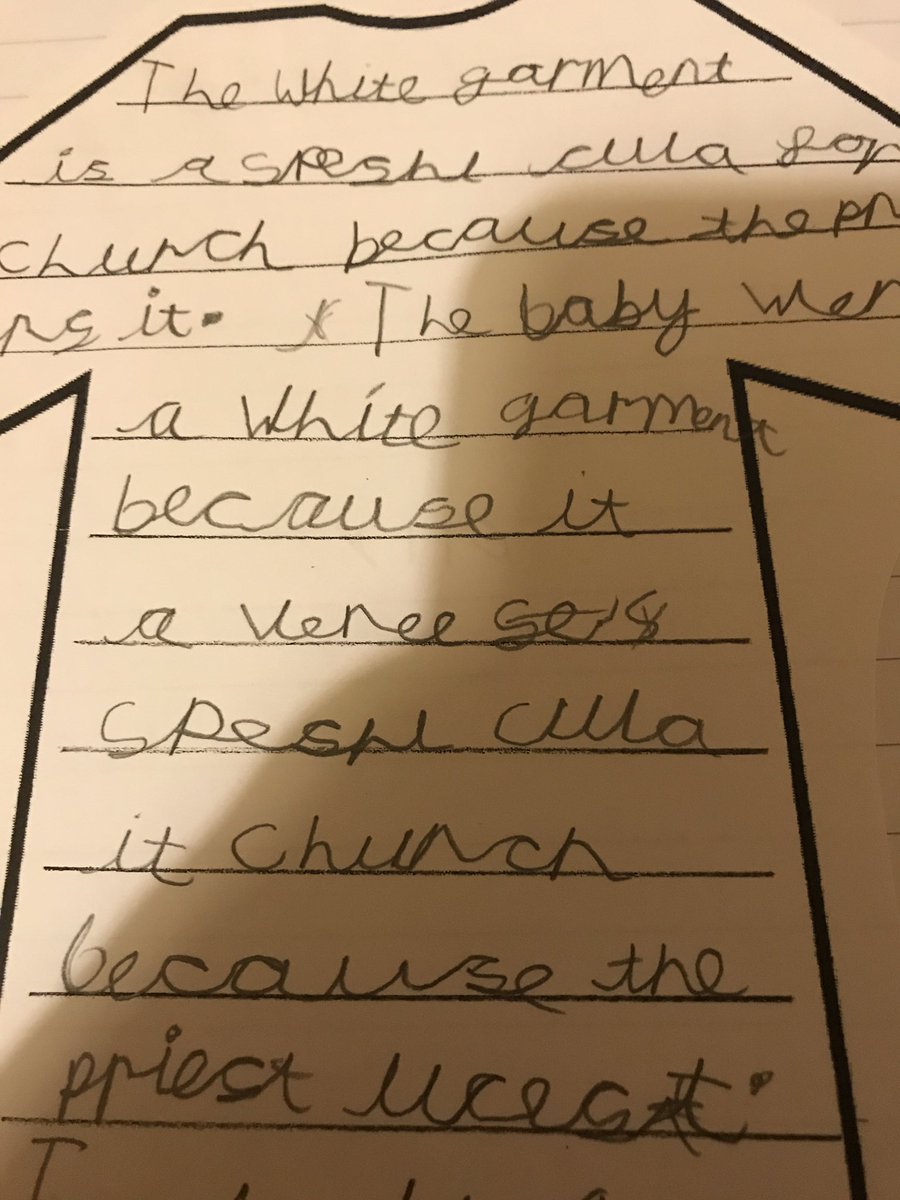 The white garment
is a speshl culla for
church because the pr
it. The baby wer
a white garment
because it
a veree
speshl culla
it church
because the
priest